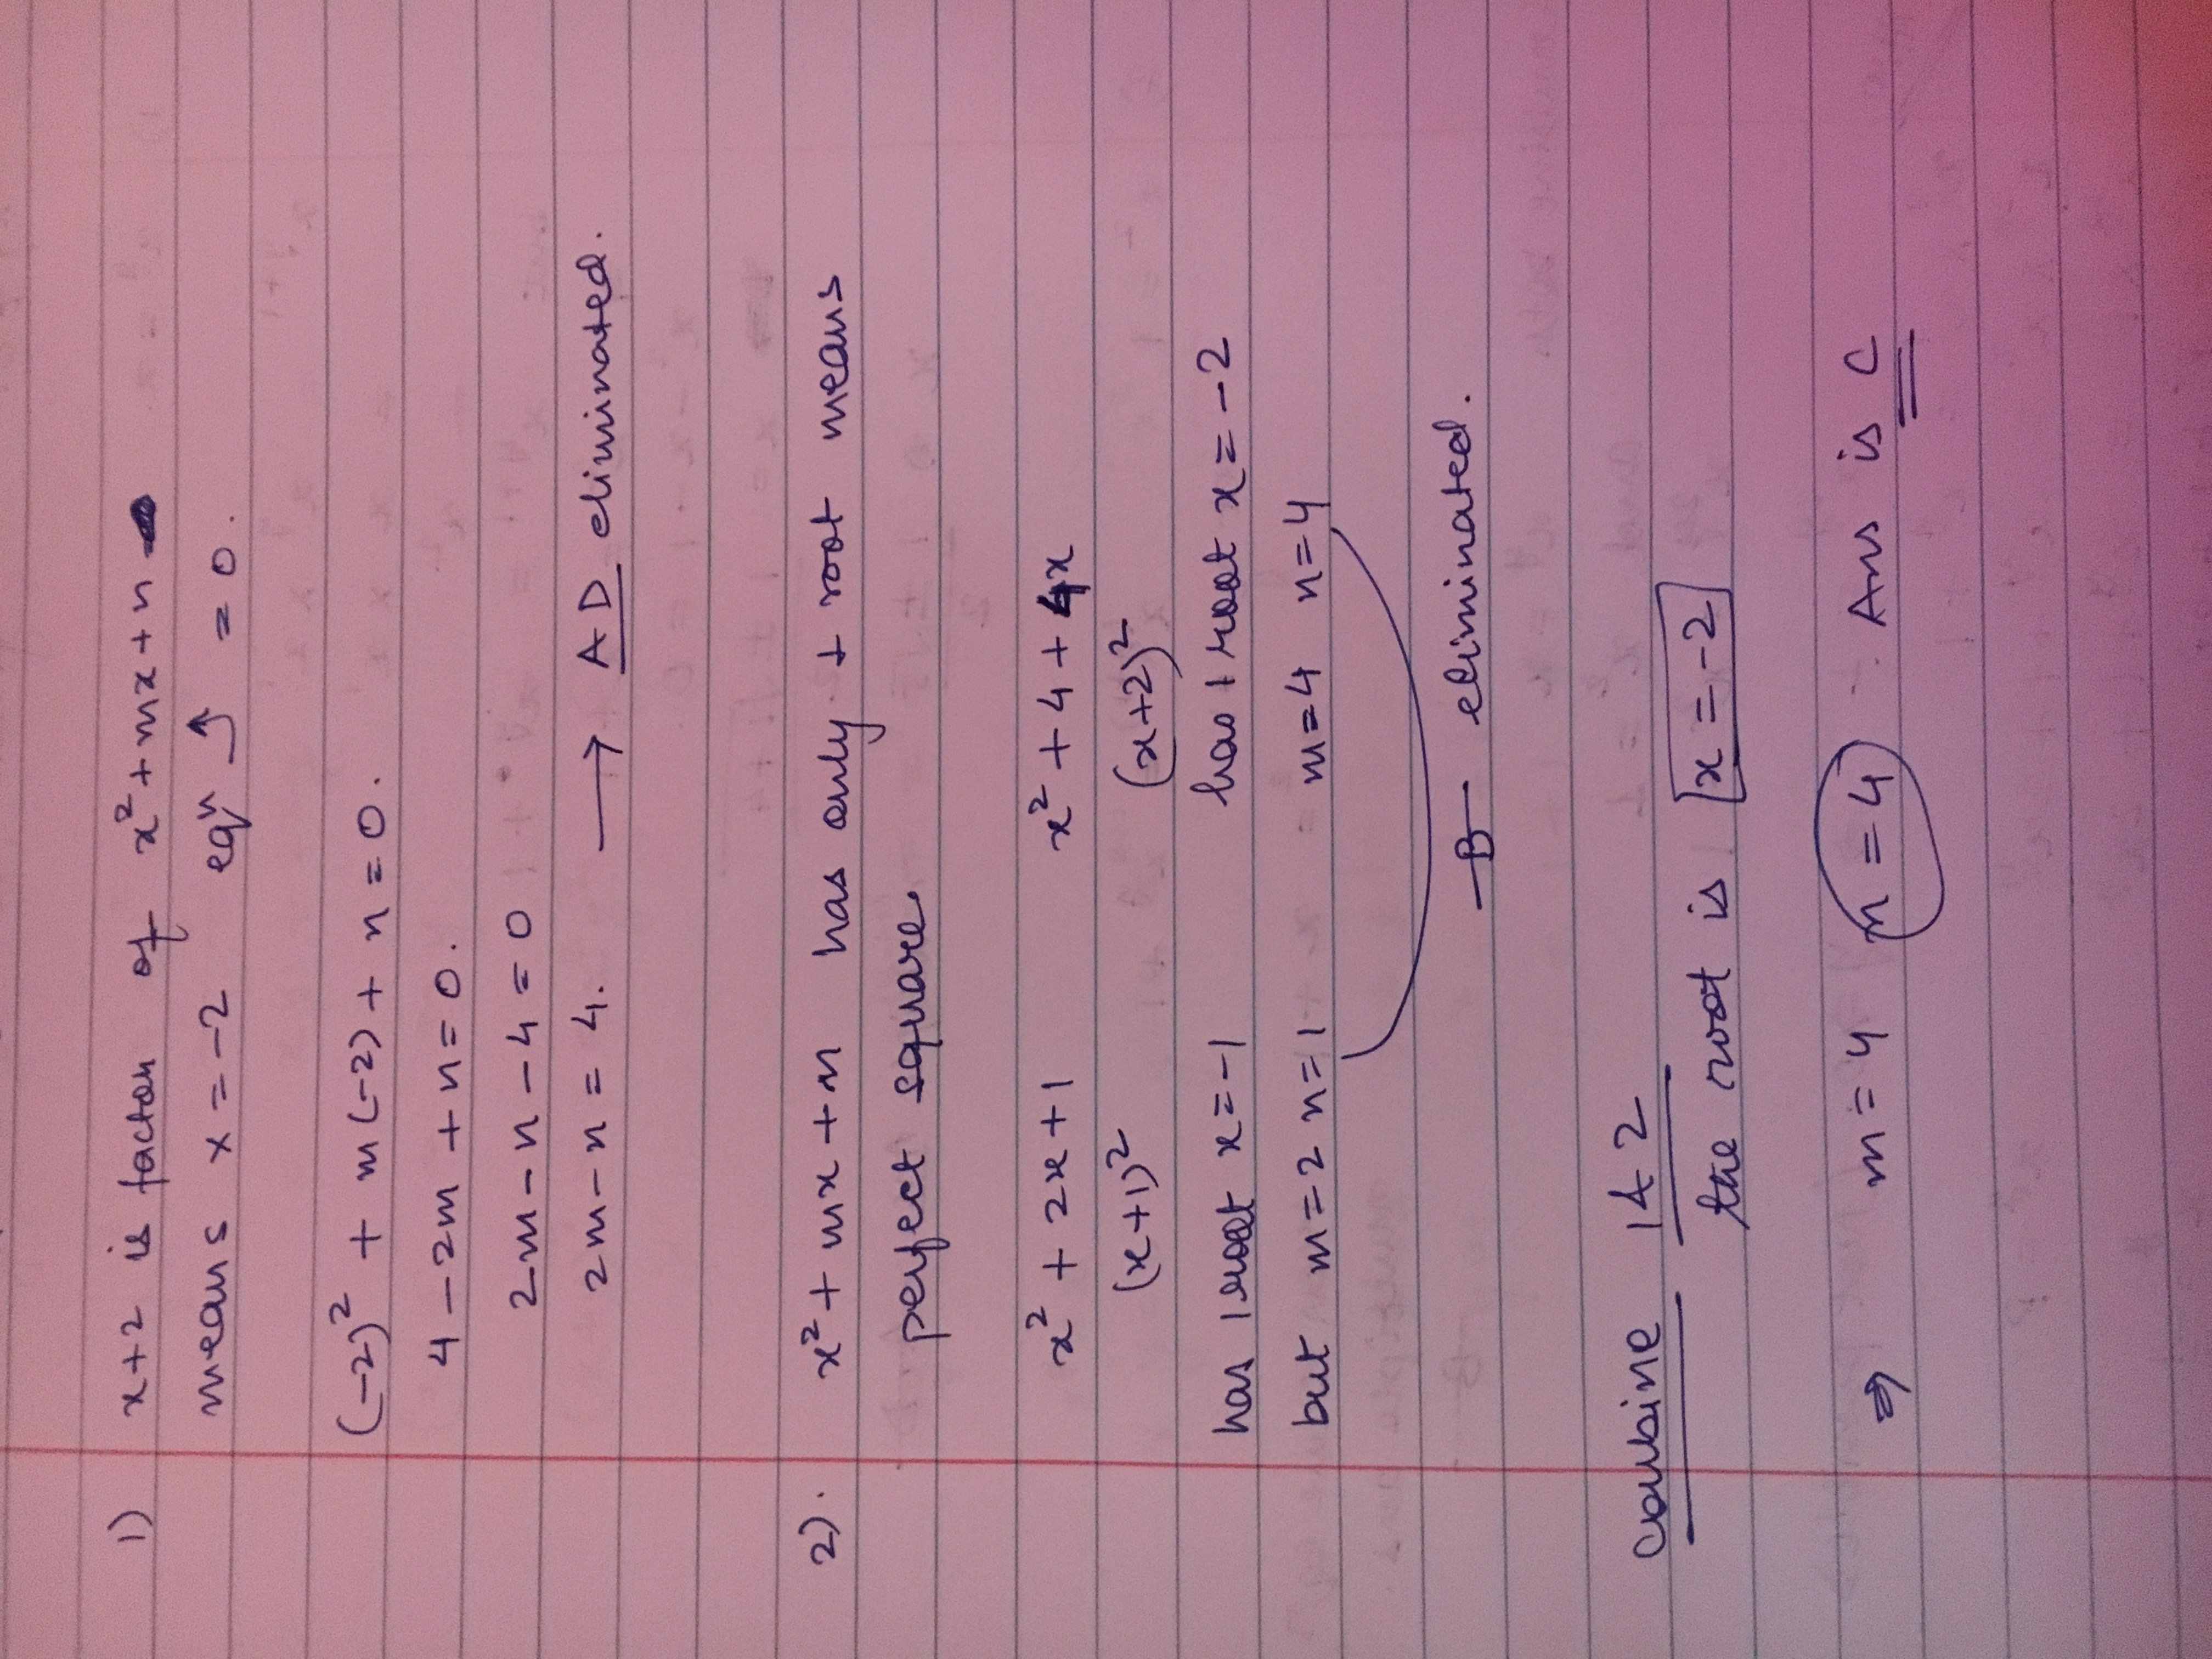 1) x+2 is factor of x²+mx+n
means x = -2 eqⁿ ⤴ = 0.
(-2)² + m(-2) + n = 0.
4 - 2m + n = 0.
2m - n - 4 = 0
2m - n = 4. → AD eliminated.
2). x² + mx + n has only 1 root means
perfect square
x² + 2x + 1 x² + 4 + 4x
(x+1)² (x+2)²
has 1 root x = -1 has 1 root x = -2
but m = 2 n = 1 m = 4 n = 4
B eliminated.
combine 1&2
the root is x = -2
⇒ m = 4 n = 4 . Ans is C